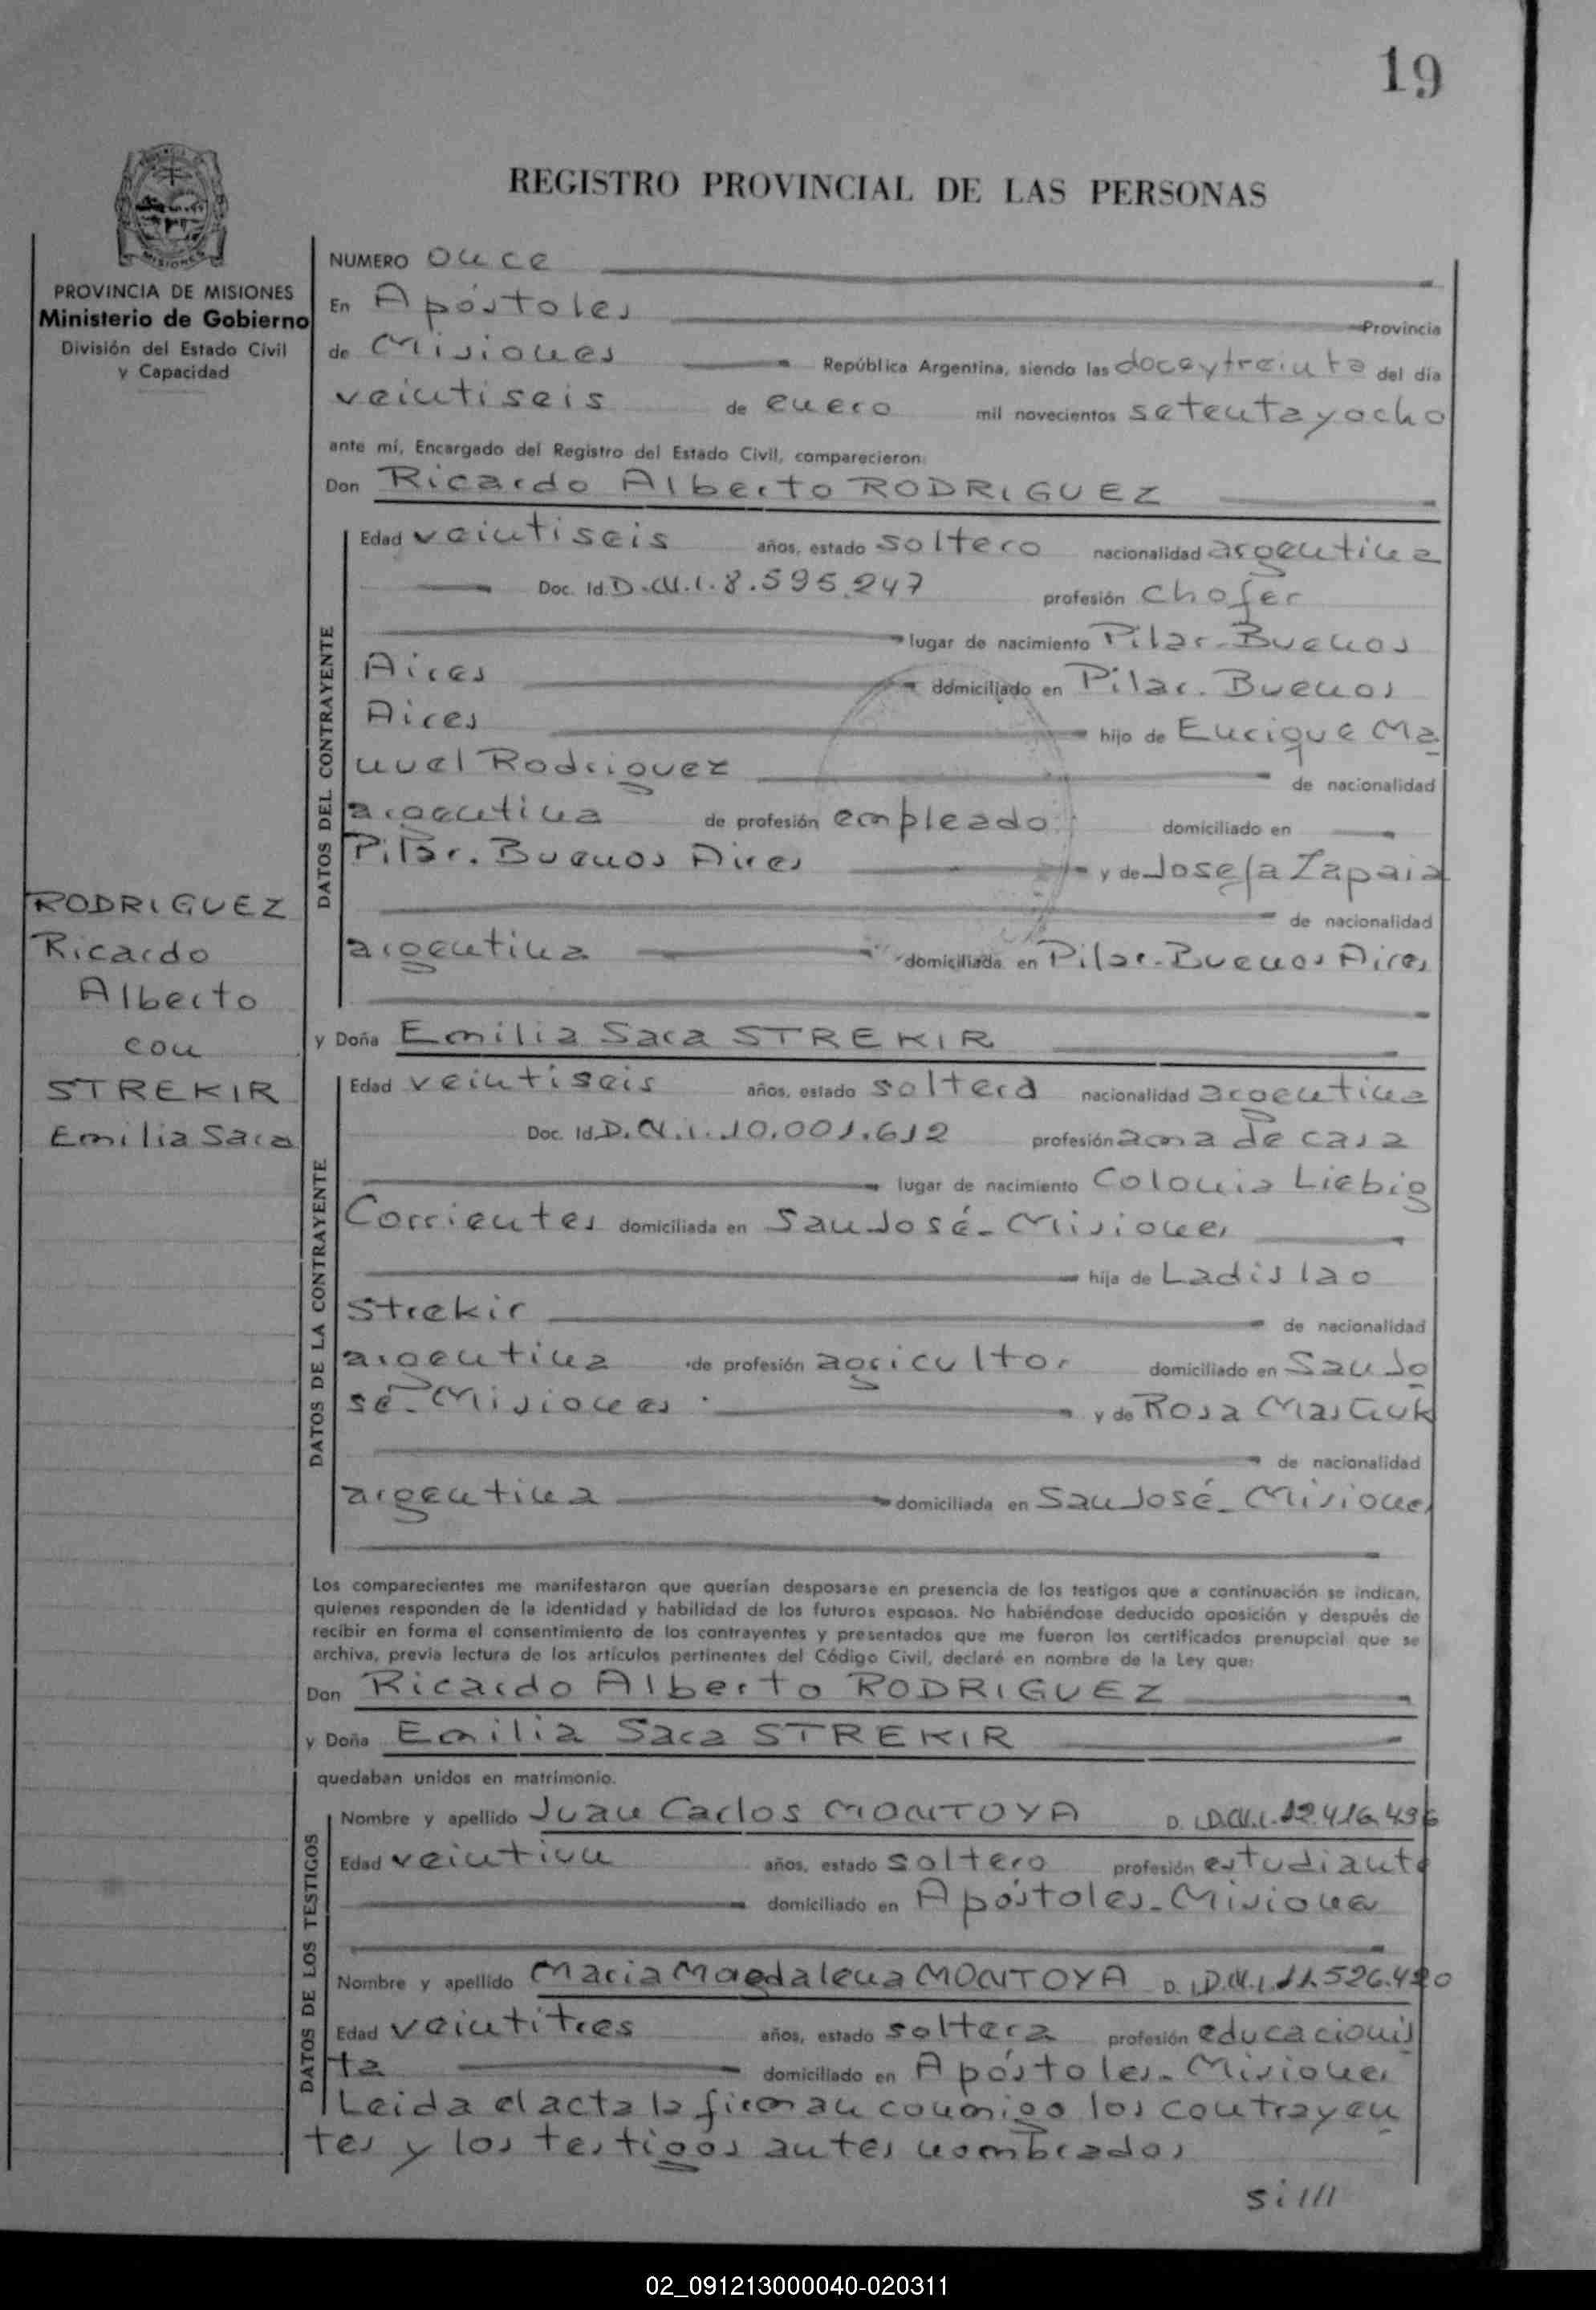 19
REGISTRO PROVINCIAL DE LAS PERSONAS
MISIONES
PROVINCIA DE MISIONES
Ministerio de Gobierno
División del Estado Civil
y Capacidad
NUMERO Once
En Apóstoles Provincia
de Misiones República Argentina, siendo las doce y treinta del día
veintiseis de enero mil novecientos setenta y ocho
ante mí, Encargado del Registro del Estado Civil, comparecieron:
Don Ricardo Alberto RODRIGUEZ
DATOS DEL CONTRAYENTE
Edad veintiseis años, estado soltero nacionalidad argentina
Doc. Id. D.N.I. 8.595.247 profesión chofer
lugar de nacimiento Pilar-Buenos
Aires domiciliado en Pilar. Buenos
Aires hijo de Enrique Ma
nuel Rodriguez de nacionalidad
argentina de profesión empleado domiciliado en
Pilar. Buenos Aires y de Josefa Zapaia
de nacionalidad
argentina domiciliada en Pilar-Buenos Aires
RODRIGUEZ
Ricardo
Alberto
con
STREKIR
Emilia Sara
y Doña Emilia Sara STREKIR
DATOS DE LA CONTRAYENTE
Edad veintiseis años, estado soltera nacionalidad argentina
Doc. Id. D.N.I. 10.001.612 profesión ama de casa
lugar de nacimiento Colonia Liebig
Corrientes domiciliada en San José-Misiones
hija de Ladislao
Strekir de nacionalidad
argentina de profesión agricultor domiciliado en San Jo
sé-Misiones y de Rosa
de nacionalidad
argentina domiciliada en San José-Misiones
Los comparecientes me manifestaron que querían desposarse en presencia de los testigos que a continuación se indican,
quienes responden de la identidad y habilidad de los futuros esposos. No habiéndose deducido oposición y después de
recibir en forma el consentimiento de los contrayentes y presentados que me fueron los certificados prenupcial que se
archiva, previa lectura de los artículos pertinentes del Código Civil, declaré en nombre de la Ley que:
Don Ricardo Alberto RODRIGUEZ
y Doña Emilia Sara STREKIR
quedaban unidos en matrimonio.
DATOS DE LOS TESTIGOS
Nombre y apellido Juan Carlos MONTOYA D. I. D.N.I. 12.416.496
Edad veintiun años, estado soltero profesión estudiante
domiciliado en Apóstoles-Misiones
Nombre y apellido Maria Magdalena MONTOYA D. I. D.N.I. 11.526.420
Edad veintitres años, estado soltera profesión educacionis
ta domiciliado en Apóstoles-Misiones
Leida el acta la firman conmigo los contrayen
tes y los testigos antes nombrados
si///
02_091213000040-020311